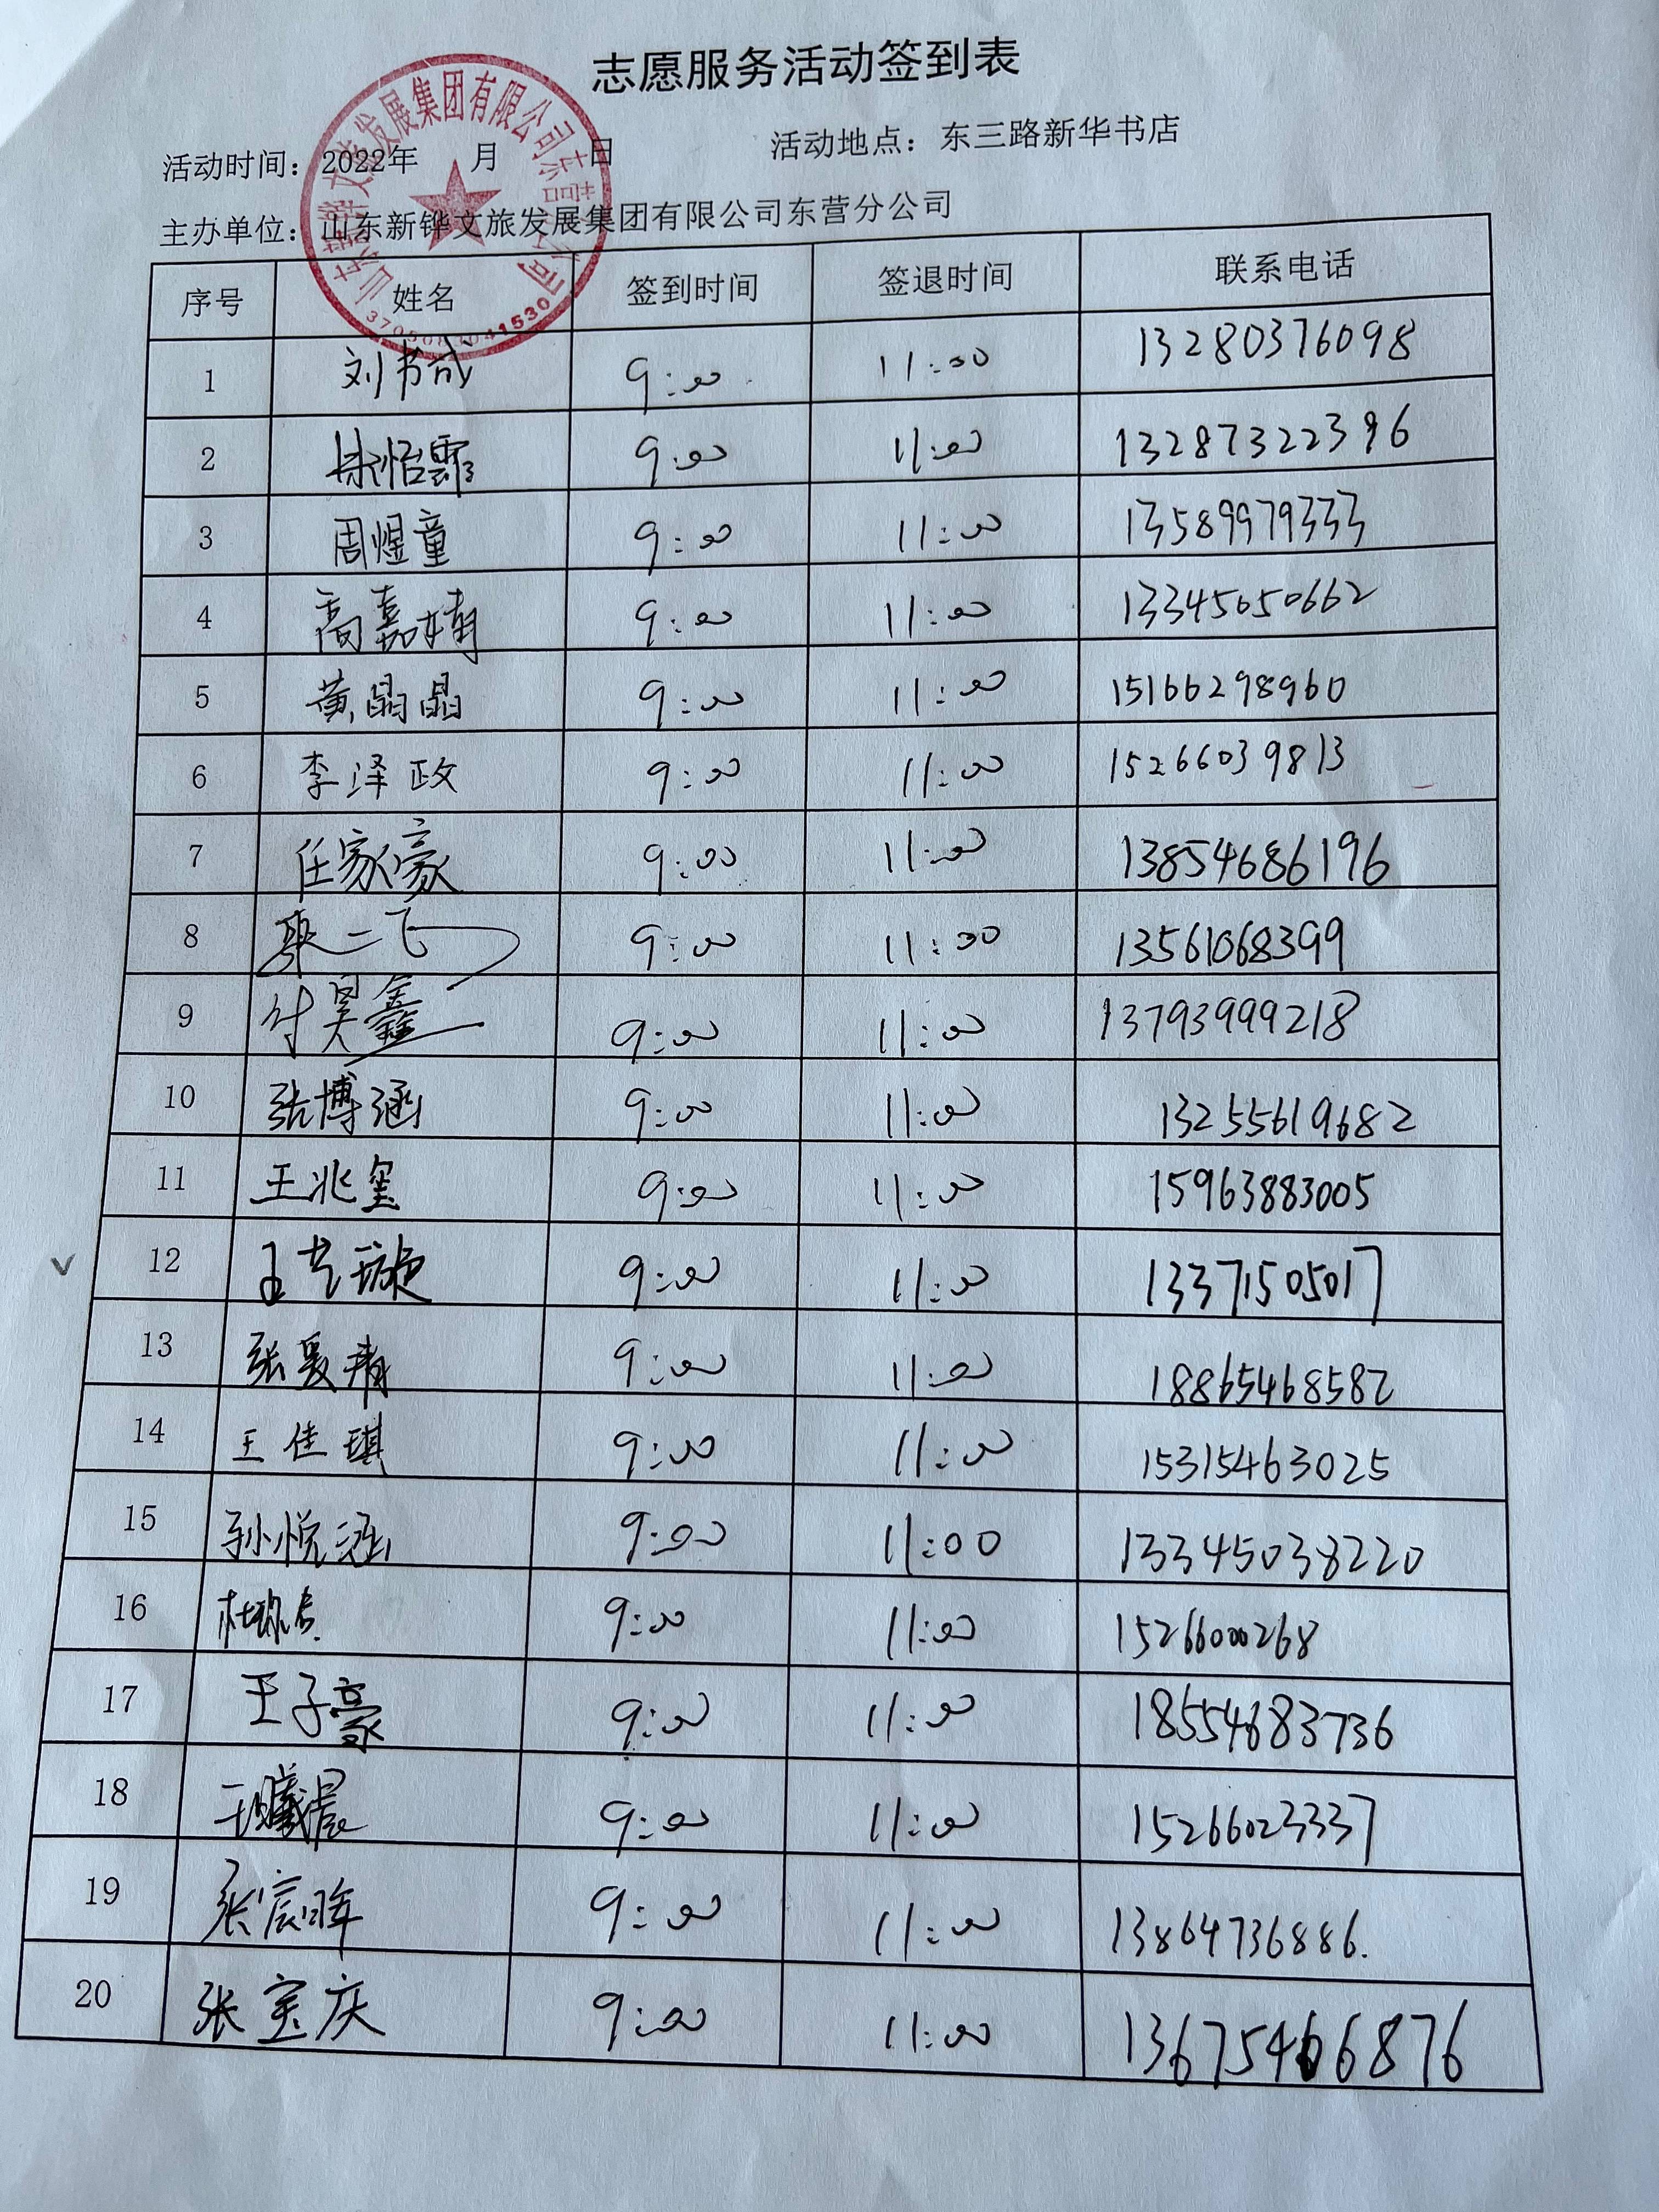 志愿服务活动签到表
活动时间：2022年 月 日 活动地点：东三路新华书店
主办单位：山东新铧文旅发展集团有限公司东营分公司
山东新铧文旅发展集团有限公司东营分公司
序号 姓名 签到时间 签退时间 联系电话
1 刘书成 9:00 11:00 13280376098
2 徐怡霏 9:00 11:00 13287322396
3 周煜童 9:00 11:00 13589979333
4 高嘉楠 9:00 11:00 13345050662
5 黄晶晶 9:00 11:00 15166298960
6 李泽政 9:00 11:00 15266039813
7 任家豪 9:00 11:00 13854686196
8 9:00 11:00 13561068399
9 付昊鑫 9:00 11:00 13793999218
10 张博涵 9:00 11:00 13255619682
11 王兆玺 9:00 11:00 15963883005
12 9:00 11:00 13371505017
13 9:00 11:00 18865468582
14 王佳琪 9:00 11:00 15315463025
15 孙悦涵 9:00 11:00 13345038220
16 9:00 11:00 15266000268
17 王子豪 9:00 11:00 18554683736
18 王曦晨 9:00 11:00 15266023337
19 张宸晖 9:00 11:00 13864736886.
20 张宝庆 9:00 11:00 13675466876